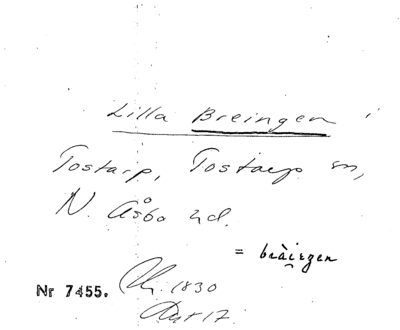 Lilla Breingen i
Tostarp, Tostarp sn,
N. Åsbo hd.
= bràingen
Nr 7455.
1830
Akt 17.